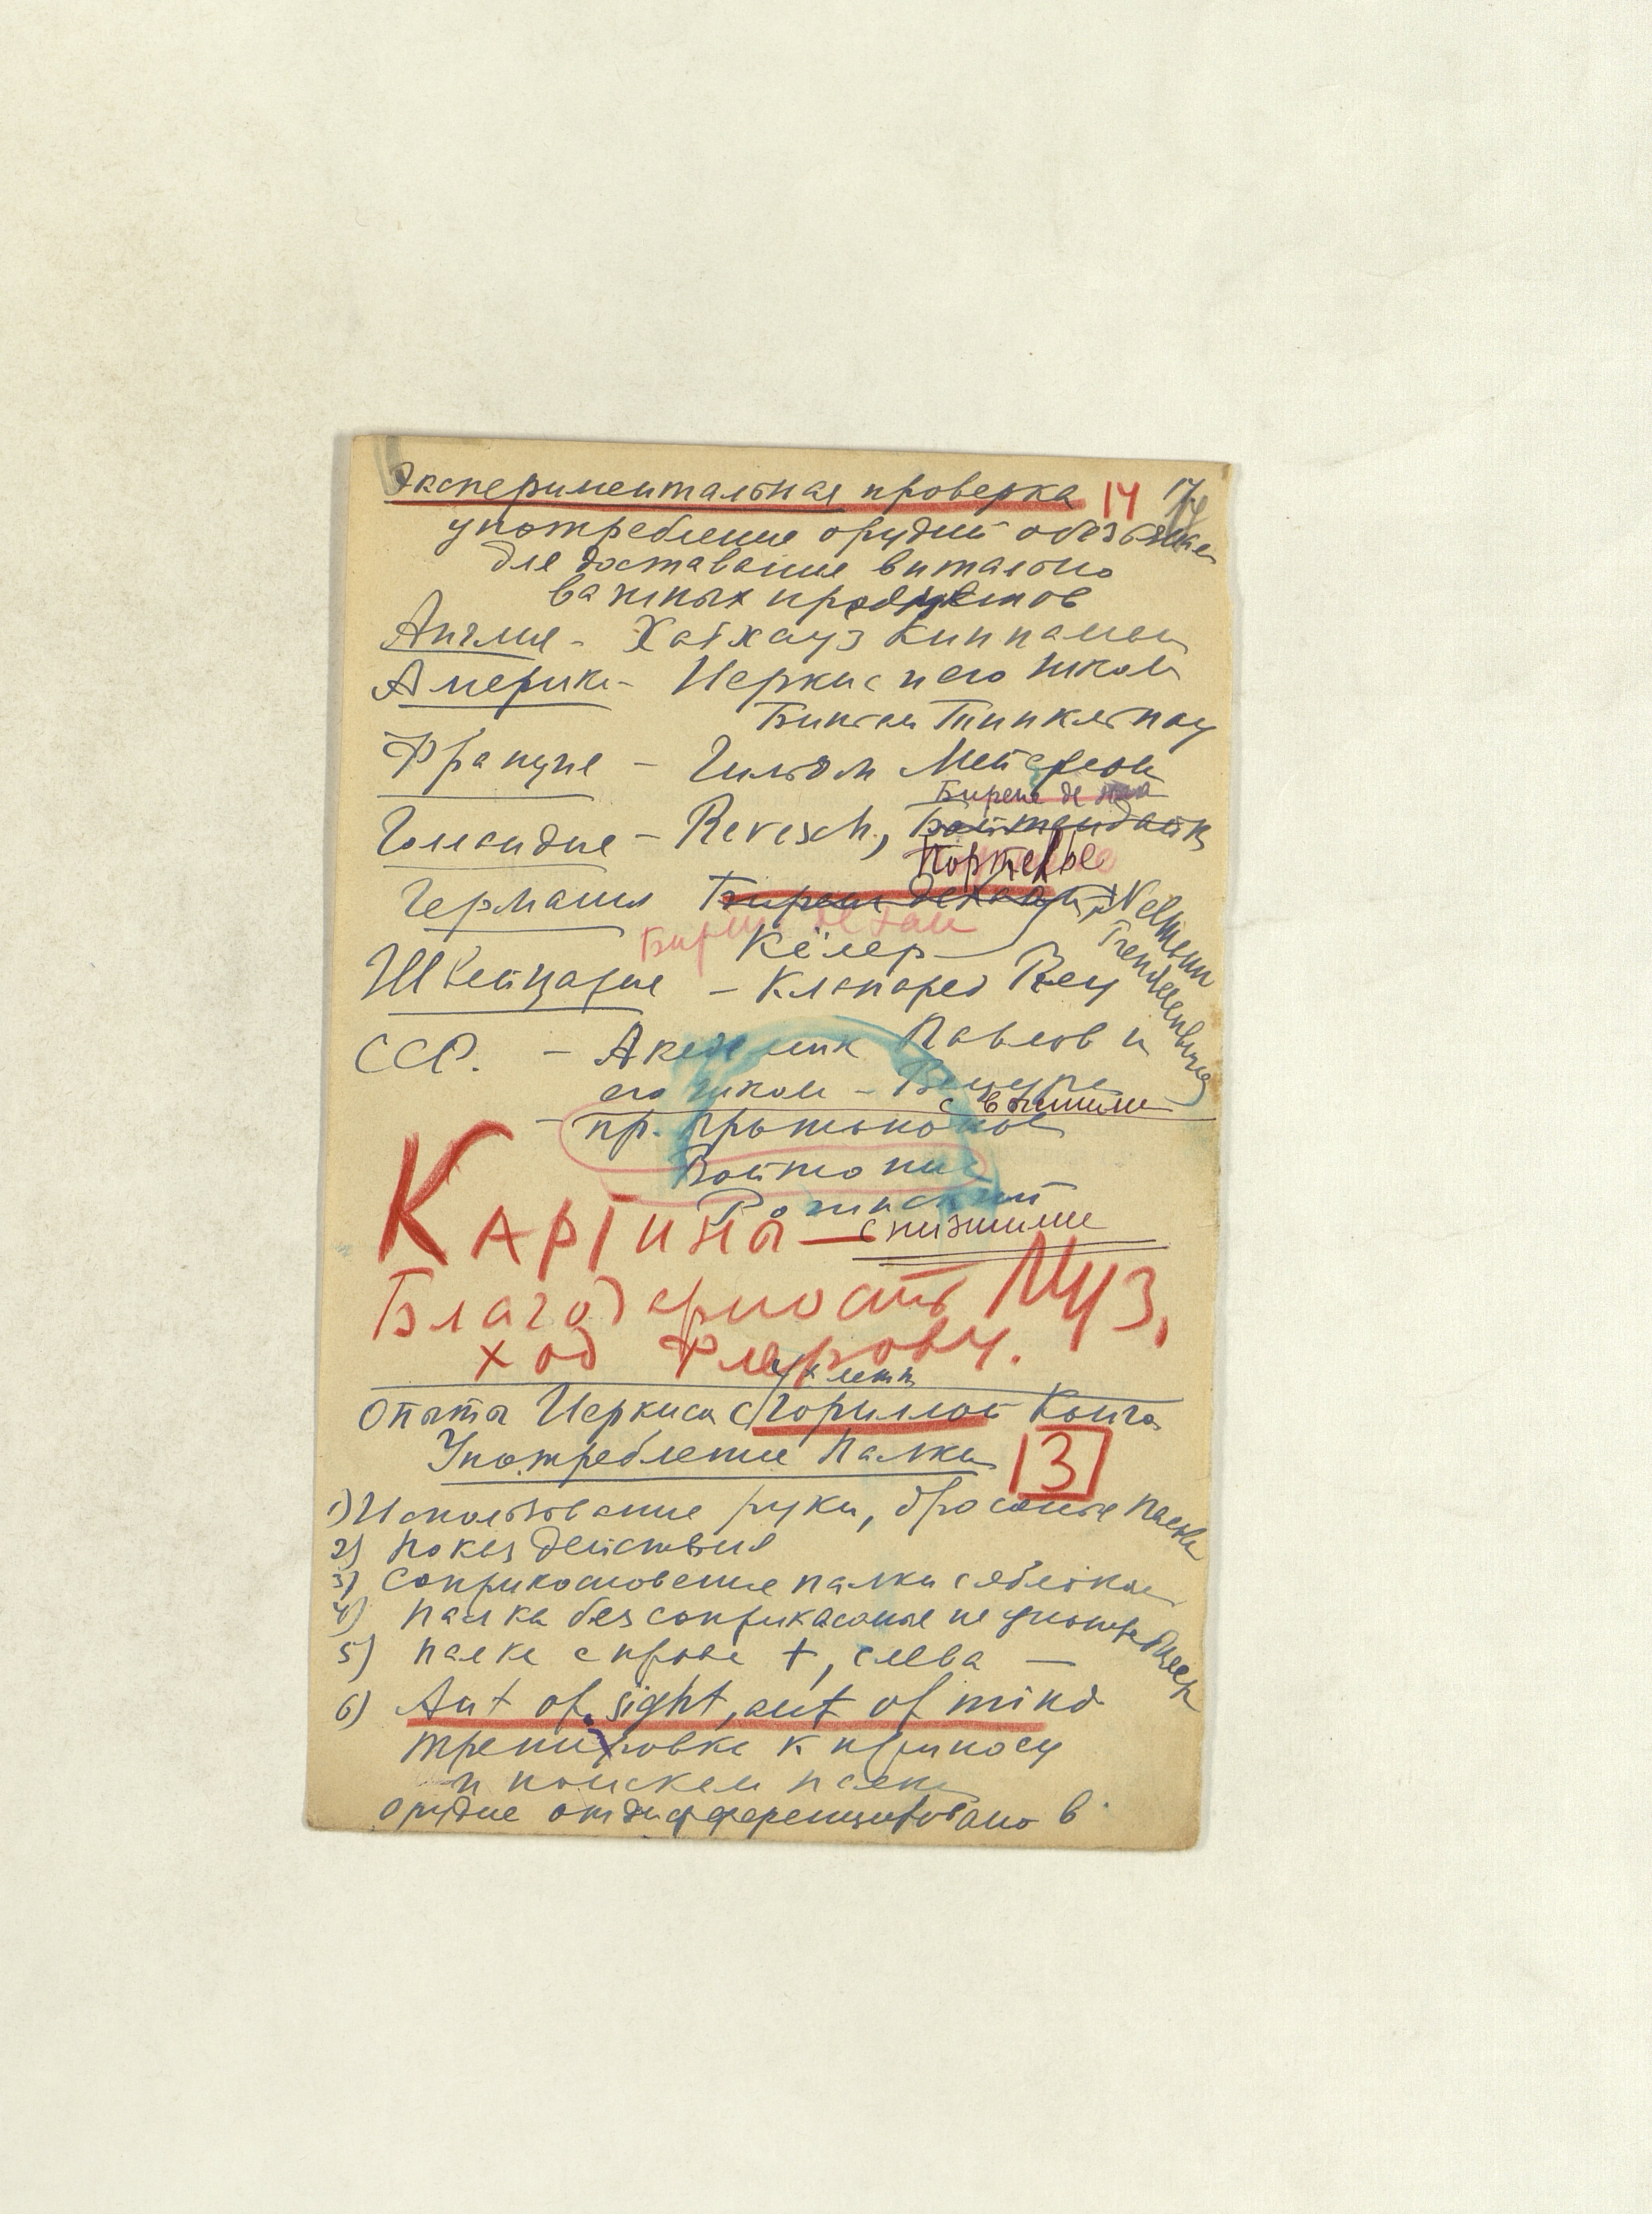 Экспериментальная проверка 14 14
употребление орудий обезьянами
для доставания витально
важных продуктов
Англия - Хабхауз Киннаман
Америка - Иеркис и его школа
Бингам Тинкльпау
Франция - Гильом Мейерсон
Биренс де Хаан
Голландия - Revesch, Бойтендайк
Портелье
Германия Биренс де Хаан, Nellmann
Биренс де Хаан
Кёлер Trendelenburg
Швейцария - Клапаред Rey
ССР. - Академик Павлов и
его школа - Вацуро
с высшими
- пр. Протопопов
Войтонис
Рогинский
Картина - с низшими
Благодарность Муз.
худ Флерову.
5 лети
Опыты Иеркиса с Гориллой Конго
Употребление палки 3
1) Использование руки, бросание палки
2) показ действия
3) соприкосновение палки с яблоком
4) палка без соприкасания не употребляет
5) палка справа +, слева —
6) Aut of sight, aut of mind
тренировка к приносу
и поискам палки
Орудие отдифференцировано в